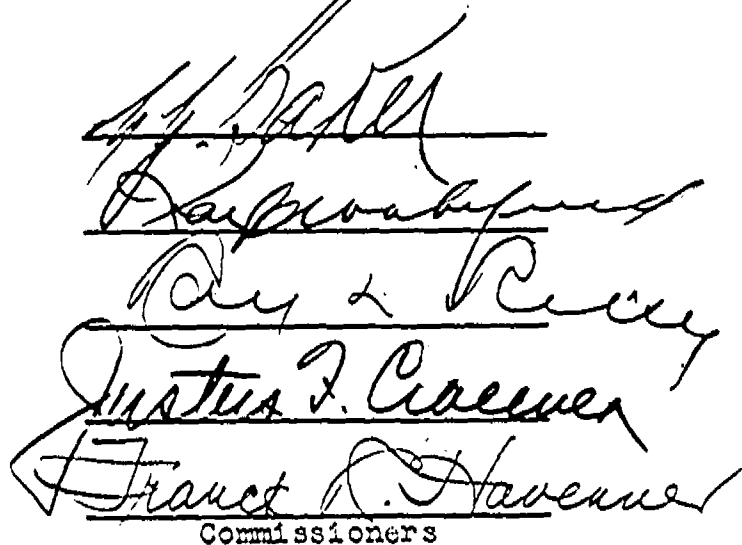 Baker
Ray L. Riley
Justus F. Craemer
Franck R. Havenner
Commissioners